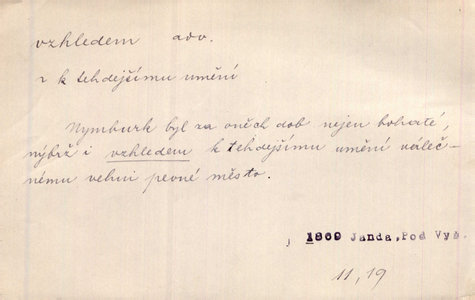 vzhledem adv.
v k tehdejšímu umění
Nymburk byl za oněch dob nejen bohaté,
nýbrž i vzhledem k tehdejšímu umění váleč-
nému velmi pevné město.
1869 Janda, Pod Vyš.
11, 19